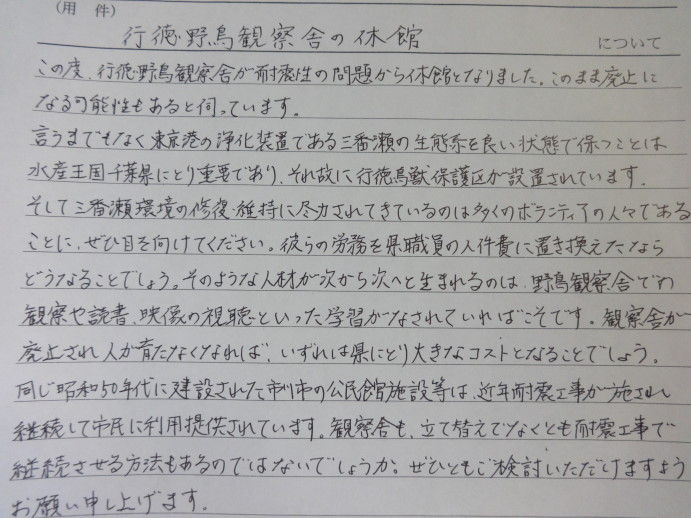 (用 件)
行徳野鳥観察舎の休館 について
この度、行徳野鳥観察舎が耐震性の問題から休館となりました。このまま廃止に
なる可能性もあると伺っています。
言うまでもなく東京港の浄化装置である三番瀬の生態系を良い状態で保つことは
水産王国千葉県にとり重要であり、それ故に行徳鳥獣保護区が設置されています。
そして三番瀬環境の修復・維持に尽力されてきているのは多くのボランティアの人々である
ことに、ぜひ目を向けてください。彼らの労務を県職員の人件費に置き換えたなら
どうなることでしょう。そのような人材が次から次へと生まれるのは、野鳥観察舎での
観察や読書、映像の視聴といった学習がなされていればこそです。観察舎が
廃止され人が育たなくなれば、いずれは県にとり大きなコストとなることでしょう。
同じ昭和50年代に建設された市川市の公民館施設等は、近年耐震工事が施され
継続して市民に利用提供されています。観察舎も、立て替えでなくとも耐震工事で
継続させる方法もあるのではないでしょうか。ぜひともご検討いただけますよう
お願い申し上げます。